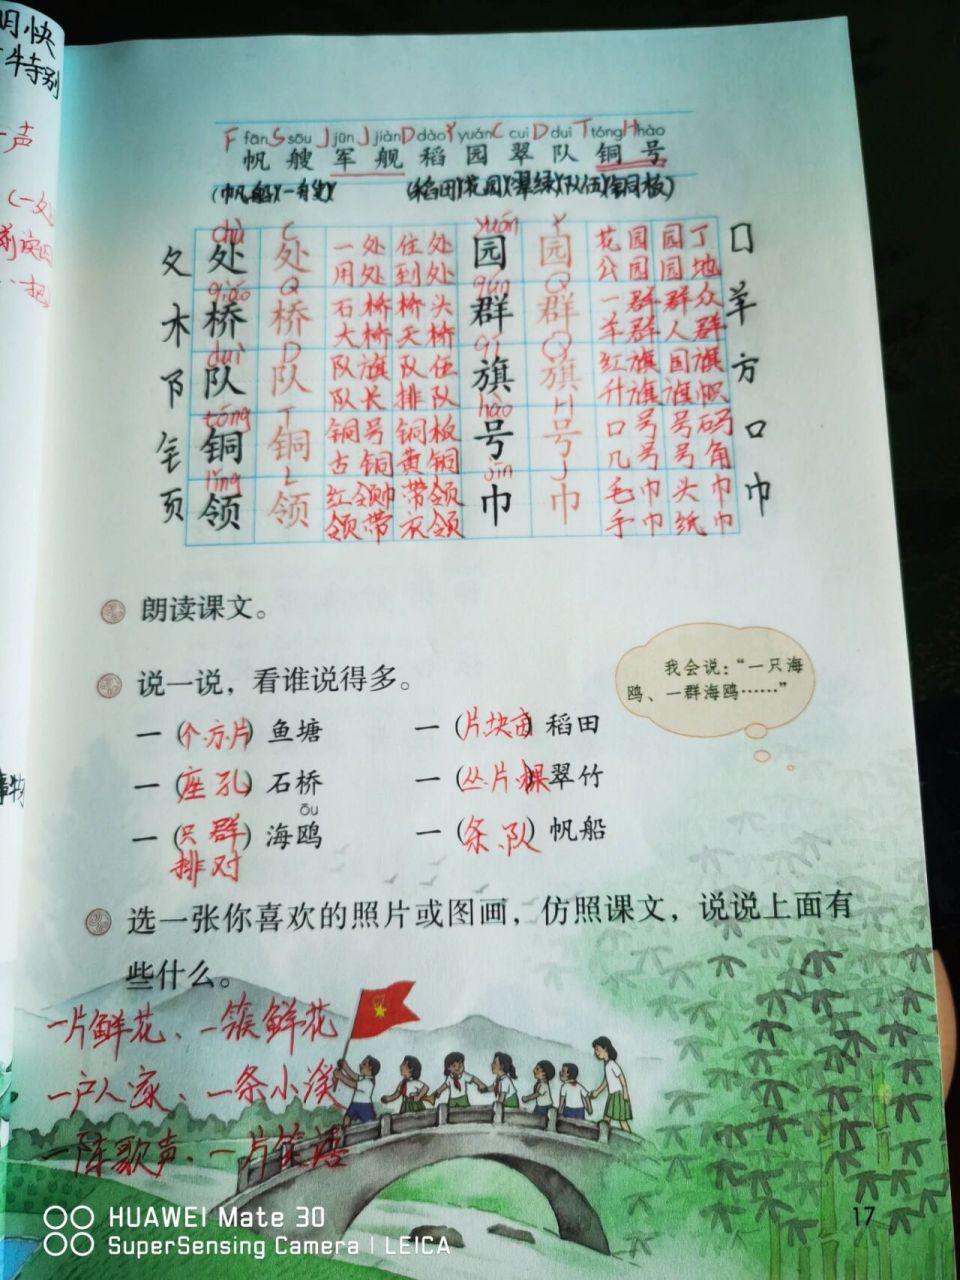 明快
特别
一声
(一处
F fān S sōu J jūn J jiàn D dào Y yuán C cuì D duì T tóng H hào
帆 艘 军 舰 稻 园 翠 队 铜 号
(帆船)(一艘)(稻田)(花园)(翠绿)(队伍)(铜板)
chù C yuán Y
夂 处 处 一处 住处 园 园 花园 园丁 囗
用处 到处 公园 园地
qiáo Q qún Q
木 桥 桥 石桥 桥头 群 群 一群 群众 羊
大桥 天桥 羊群 人群
duì D qí Q
阝 队 队 队旗 队伍 旗 旗 红旗 国旗 方
队长 排队 升旗 旗帜
tóng T hào H
钅 铜 铜 铜号 铜板 号 号 口号 号码 口
古铜 黄铜 几号 号角
lǐng L jīn J
页 领 领 红领巾 带领 巾 巾 毛巾 头巾 巾
领带 衣领 手巾 纸巾
朗读课文。
说一说，看谁说得多。
我会说：“一只海
鸥、一群海鸥……”
一(个.方.片)鱼塘 一(片.块.亩)稻田
一(座.孔)石桥 一(丛.片.棵)翠竹
ōu
一(只.群)海鸥 一(条.队)帆船
排 对
选一张你喜欢的照片或图画，仿照课文，说说上面有
些什么。
一片鲜花、一簇鲜花
一户人家、一条小溪
一阵歌声、一片笑语
17
HUAWEI Mate 30
SuperSensing Camera | LEICA